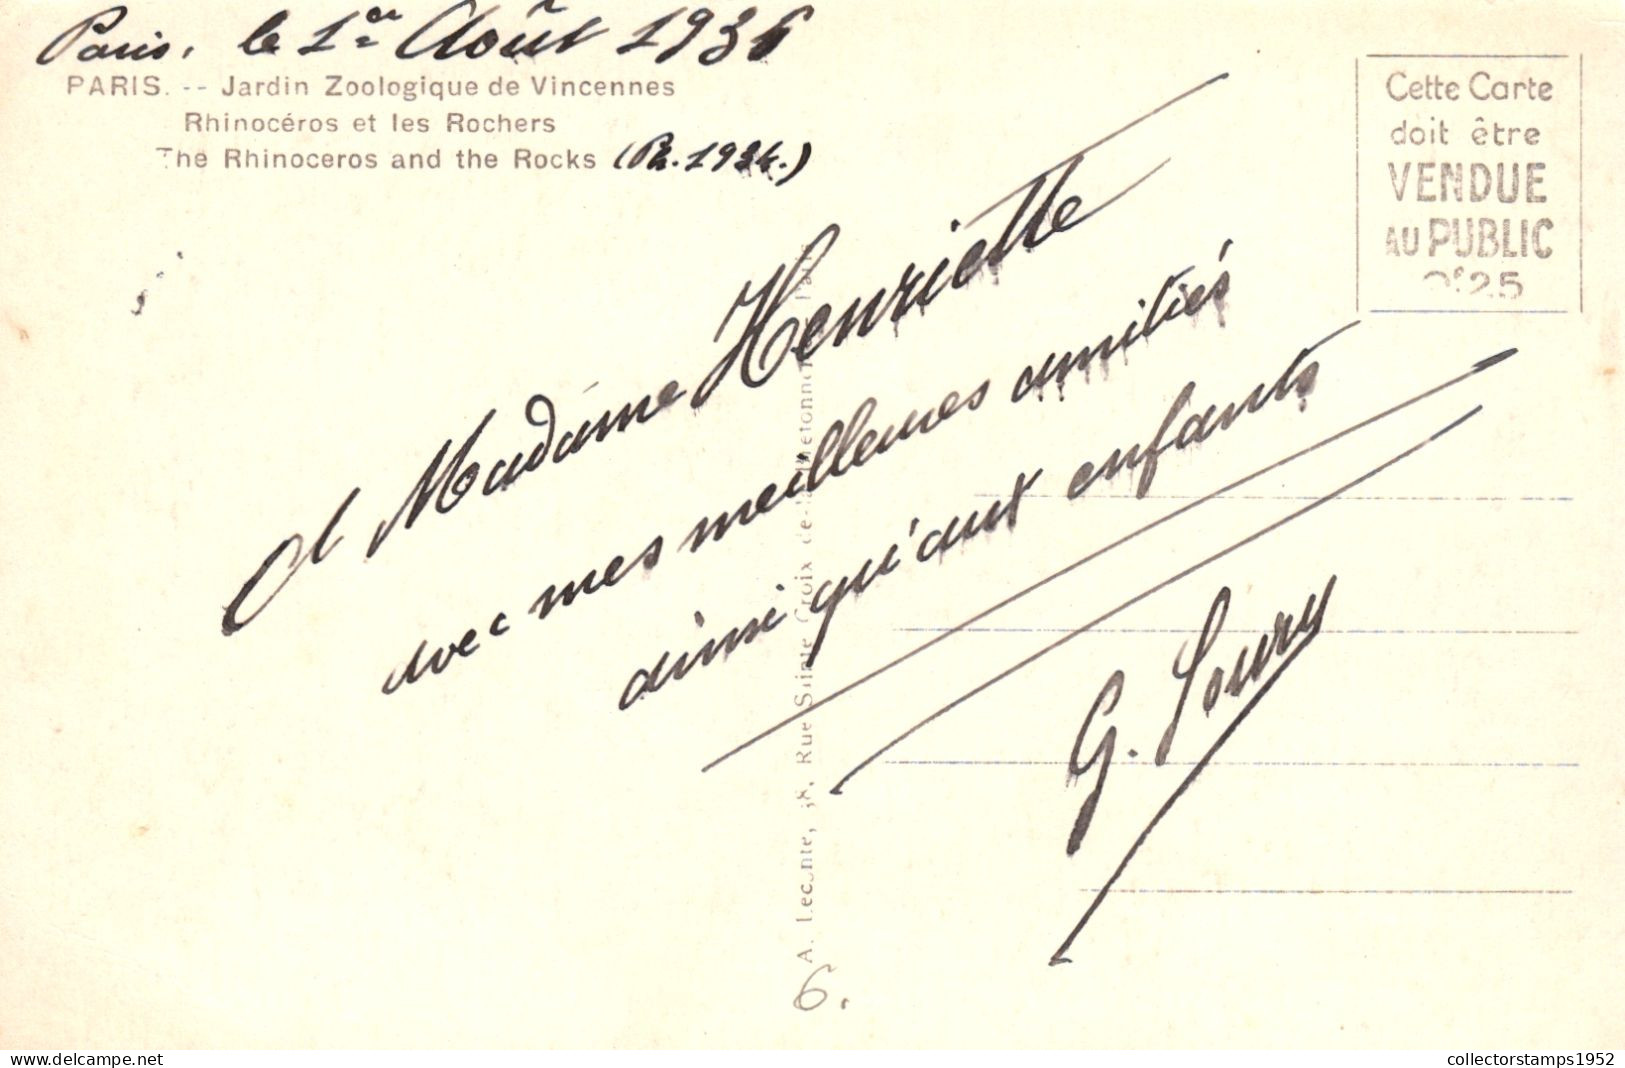 Paris, le 1er Août 1936
PARIS. -- Jardin Zoologique de Vincennes
Rhinocéros et les Rochers
The Rhinoceros and the Rocks (Ph. 1934.)
Cette Carte
doit être
VENDUE
AU PUBLIC
0f25
A Madame Henriette
avec mes meilleures amitiés
ainsi qu'aux enfants
G. Soury
A. Leconte, 38, Rue Sainte Croix-de-la-Bretonnerie, Paris
6.
collectorstamps1952